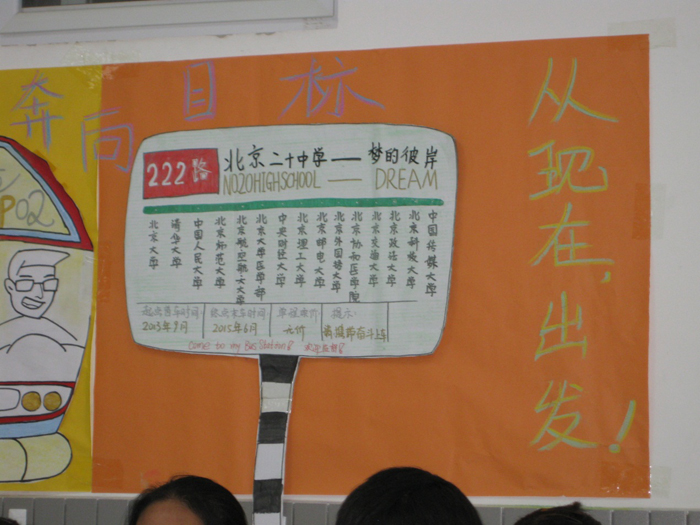 奔向目标
从现在，出发！
222路
北京二十中学——梦的彼岸
NO20HIGHSCHOOL —— DREAM
北京大学
清华大学
中国人民大学
北京师范大学
北京航空航天大学
北京大学医学部
中央财经大学
北京理工大学
北京邮电大学
北京外国语大学
北京协和医学院
北京交通大学
北京政法大学
北京科技大学
中国传媒大学
2013年9月
2015年6月
无价
提示:
Come to my Bus Station!